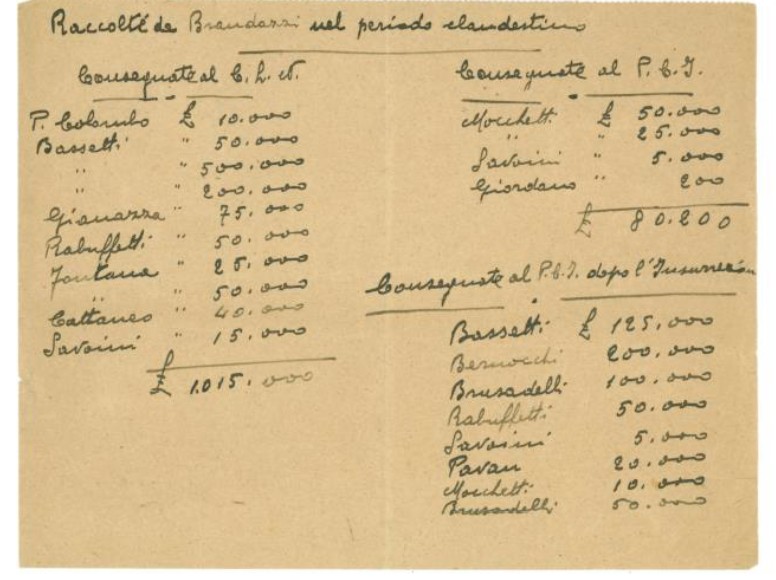 Raccolte da Brandazzi nel periodo clandestino
Consegnate al C.L.N.
P. Colombo £ 10.000
Bassetti " 50.000
" " 500.000
" " 200.000
Gianazza " 75.000
Rabuffetti " 50.000
Fontana " 25.000
" " 50.000
Cattaneo " 40.000
Savoini " 15.000
£ 1.015.000
Consegnate al P.C.I.
Mocchetti £ 50.000
" " 25.000
Savoini " 5.000
Giordano " 200
£ 80.200
Consegnate al P.C.I. dopo l'Insurrezion
Bassetti £ 125.000
Bernocchi 200.000
Brusadelli 100.000
Rabuffetti 50.000
Savoini 5.000
Pavan 20.000
Mocchetti 10.000
Brusadelli 50.000